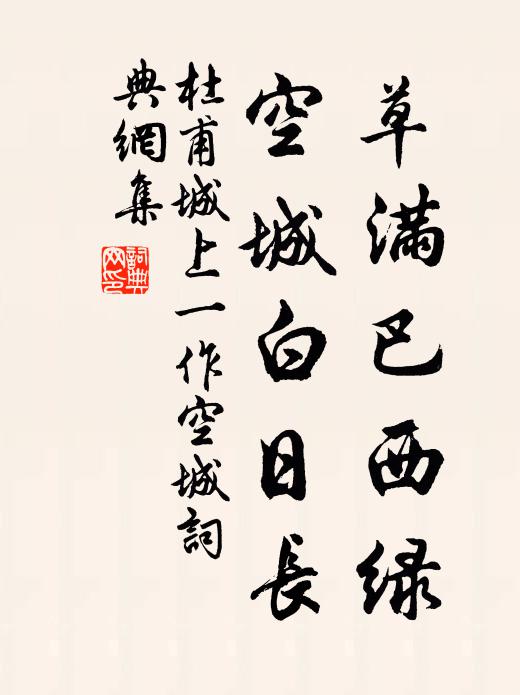 草满巴西绿
空城白日長
杜甫城上一作空城詞
典網集
詞典
网印